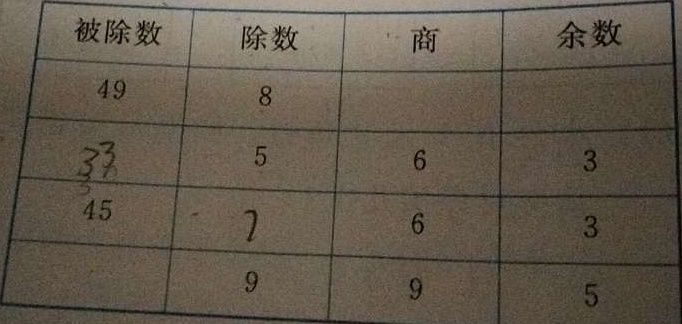 被除数 除数 商 余数
49 8
33 5 6 3
45 7 6 3
9 9 5